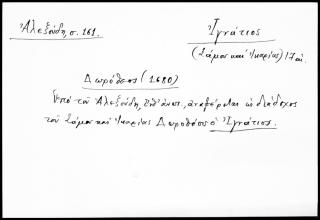 Ἀλεξούδη, σ. 161.
Ἰγνάτιος
(Σάμου καὶ Ἰκαρίας) 17 αἰ.
Δωρόθεος (1680)
Ὑπό τοῦ Ἀλεξούδη, ἀναφέρεται ὡς διάδοχος
τοῦ Σάμου καὶ Ἰκαρίας Δωροθέου ὁ Ἰγνάτιος.